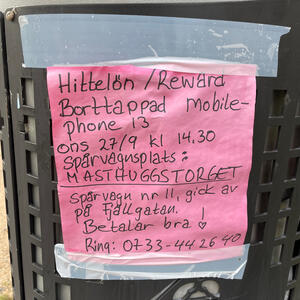 Hittelön / Reward
Borttappad mobile-
phone 13
ons 27/9 kl 14.30
Spårvagnsplats:
MASTHUGGSTORGET
Spårvagn nr 11, gick av
på Fjällgatan.
Betalar bra!
Ring: 0733-44 26 40